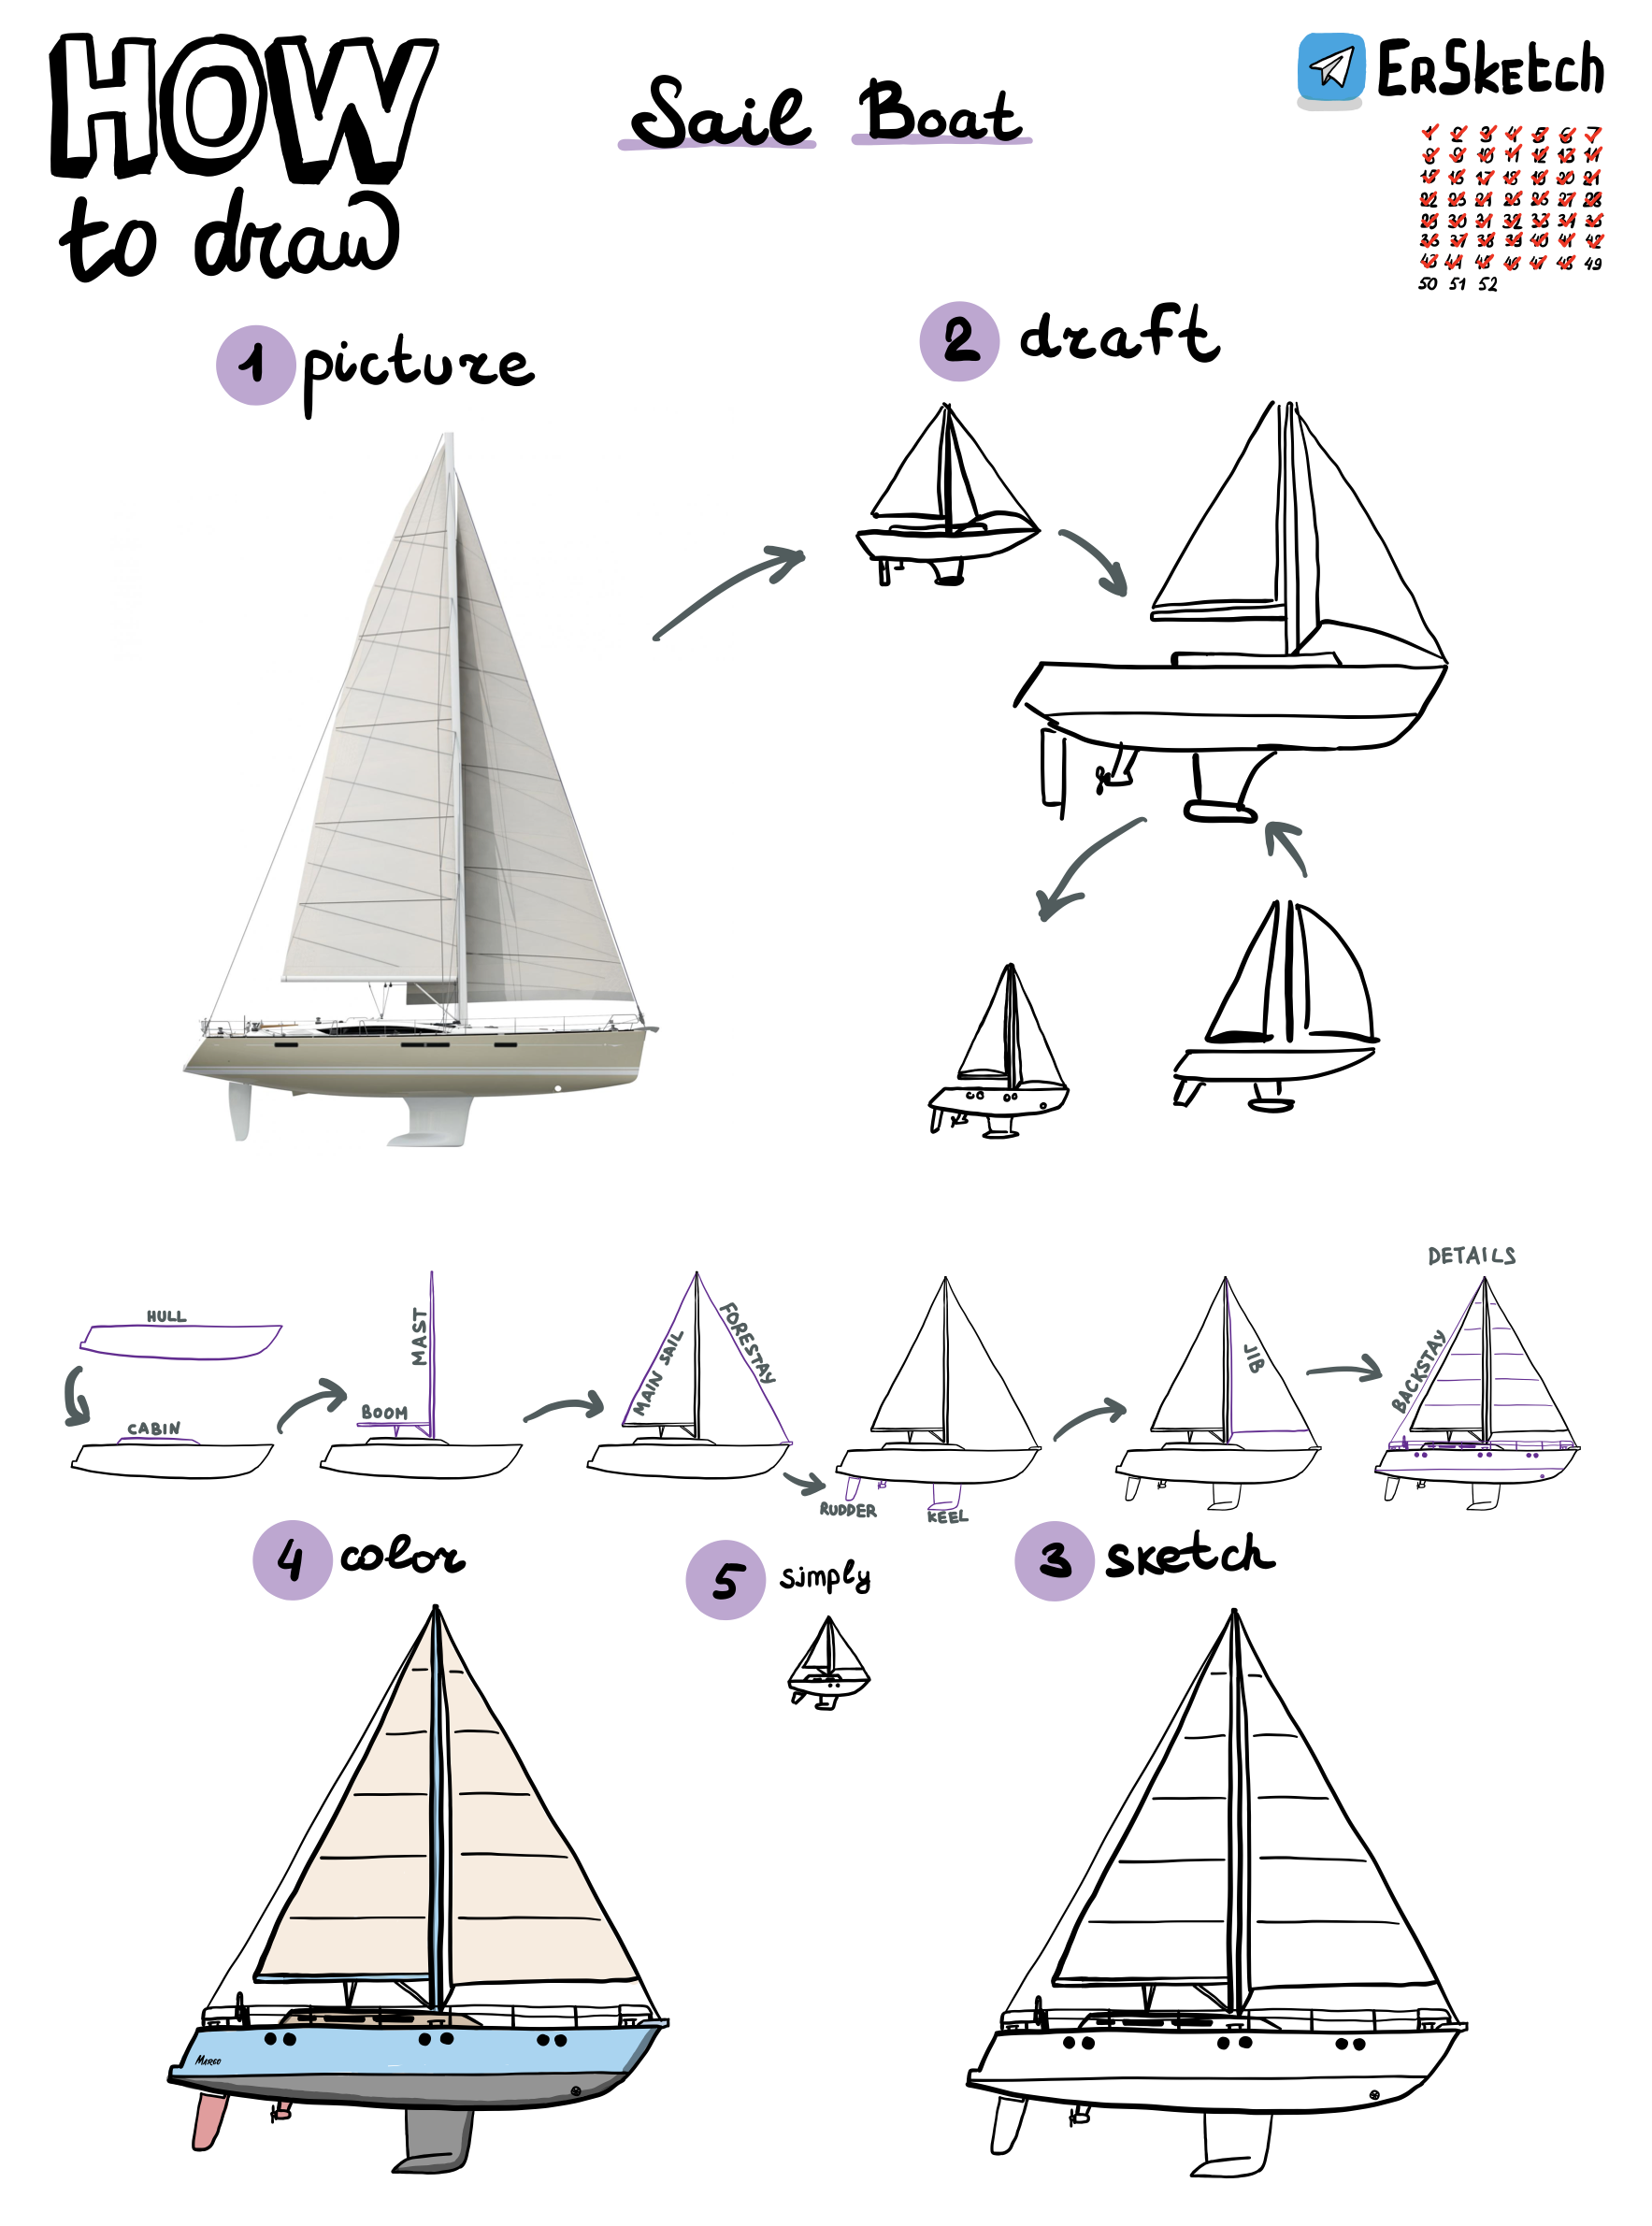 HOW
to draw
Sail Boat
ERSketch
1 2 3 4 5 6 7
8 9 10 11 12 13 14
15 16 17 18 19 20 21
22 23 24 25 26 27 28
29 30 31 32 33 34 35
36 37 38 39 40 41 42
43 44 45 46 47 48 49
50 51 52
1 picture
2 draft
HULL
CABIN
MAST
BOOM
MAIN SAIL
FORESTAY
RUDDER
KEEL
JIB
DETAILS
BACKSTAY
4 color
5 simply
3 sketch
MARGO